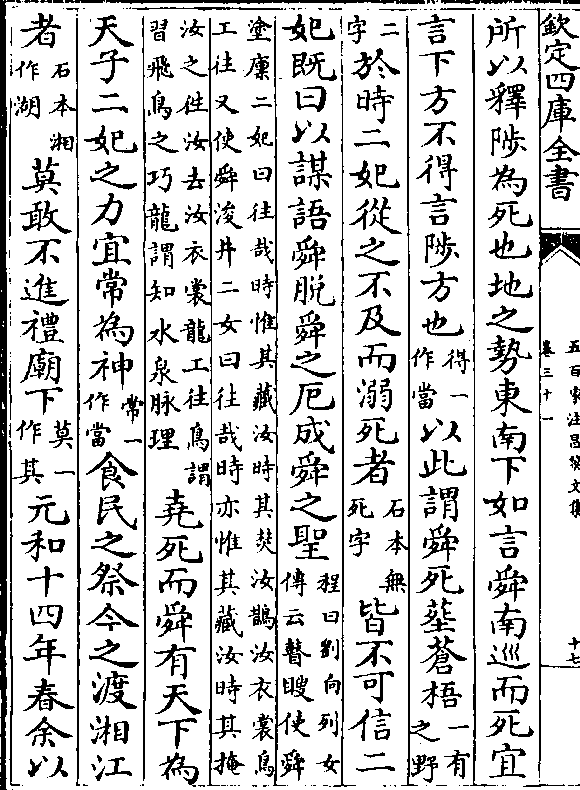 欽定四庫全書
五百家注昌黎文集
卷三十一
十七
所以釋陟為死也地之勢東南下如言舜南巡而死宜
言下方不得言陟方也得一作當以此謂舜死塟蒼梧一有之野
二字於時二妃從之不及而溺死者石本無死字皆不可信二
妃既曰以謀語舜脱舜之厄成舜之聖程曰劉向列女傳云瞽瞍使舜
塗廩二妃曰往哉時惟其藏汝時其焚汝鵲汝衣裳鳥
工往又使舜浚井二女曰往哉時亦惟其藏汝時其掩
汝之徃汝去汝衣裳龍工往鳥謂
習飛鳥之巧龍謂知水泉脉理堯死而舜有天下為
天子二妃之力宜常為神常一作當食民之祭今之渡湘江
者石本湘作湖莫敢不進禮廟下莫一作其元和十四年春余以